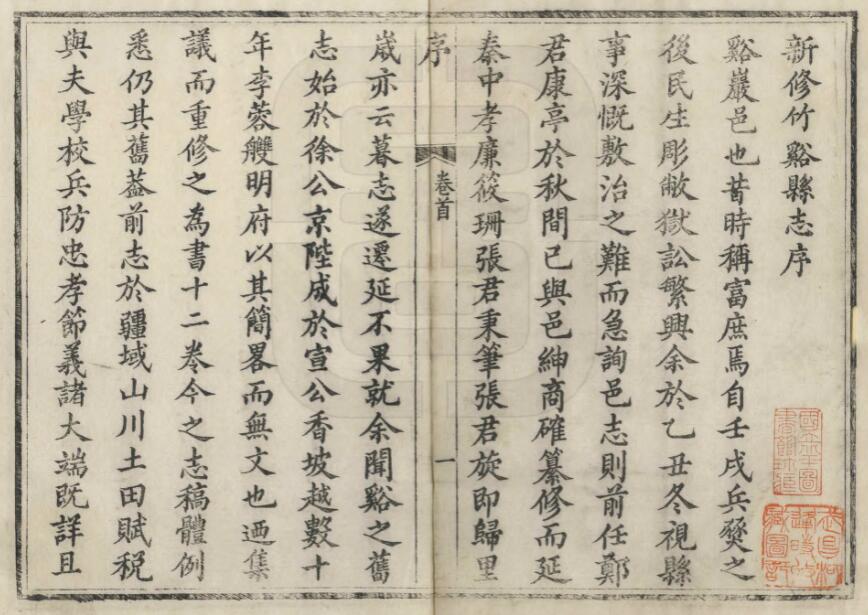 新修竹谿縣志序
谿巖邑也昔時稱富庶焉自壬戌兵燹之
後民生彫敝獄訟繁興余於乙丑冬視縣
事深慨敷治之難而急詢邑志則前任鄭
君康亭於秋間已與邑紳商確纂修而延
秦中孝廉筱珊張君秉筆張君旋即歸里
序
卷首
一
歲亦云暮志遂遷延不果就余聞谿之舊
志始於徐公京陛成於宣公香坡越數十
年李蓉艭明府以其簡畧而無文也迺集
議而重修之為書十二卷今之志稿體例
悉仍其舊葢前志於疆域山川土田賦稅
與夫學校兵防忠孝節義諸大端既詳且